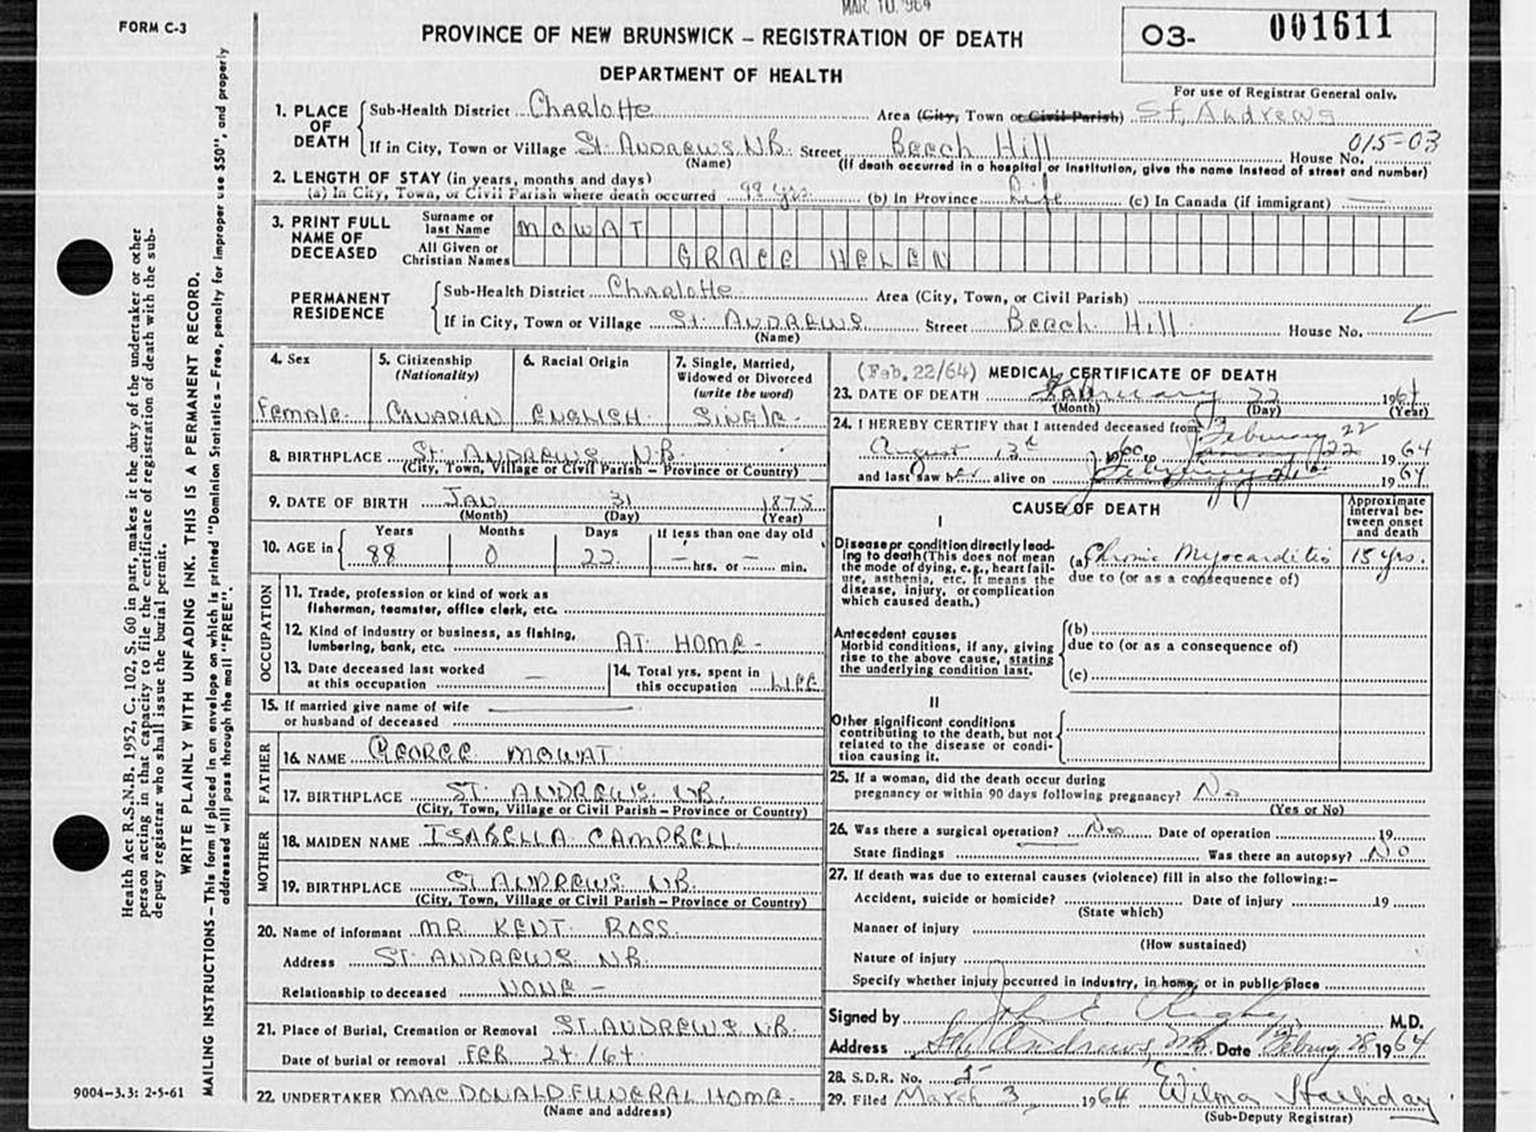 MAR 10 964
FORM C-3
PROVINCE OF NEW BRUNSWICK – REGISTRATION OF DEATH
DEPARTMENT OF HEALTH
03- 001611
For use of Registrar General only.
1. PLACE OF DEATH
Sub-Health District Charlotte Area (City, Town or Civil Parish) St. Andrews
015-03
If in City, Town or Village St. ANDREWS N.B. Street Beech Hill House No.
(Name) (If death occurred in a hospital or institution, give the name instead of street and number)
2. LENGTH OF STAY (in years, months and days)
(a) In City, Town, or Civil Parish where death occurred yrs. (b) In Province Life (c) In Canada (if immigrant) —
3. PRINT FULL NAME OF DECEASED
Surname or last Name MOWAT
All Given or Christian Names GRACE HELEN
PERMANENT RESIDENCE
Sub-Health District Charlotte Area (City, Town, or Civil Parish)
If in City, Town or Village St. ANDREWS Street Beech Hill House No.
(Name)
4. Sex Female
5. Citizenship (Nationality) CANADIAN
6. Racial Origin ENGLISH
7. Single, Married, Widowed or Divorced (write the word) SINGLE
8. BIRTHPLACE St. ANDREWS N.B.
(City, Town, Village or Civil Parish – Province or Country)
9. DATE OF BIRTH JAN 31 1875
(Month) (Day) (Year)
10. AGE in Years 88 Months 0 Days 22 If less than one day old — hrs. or — min.
OCCUPATION
11. Trade, profession or kind of work as fisherman, teamster, office clerk, etc.
12. Kind of industry or business, as fishing, lumbering, bank, etc. AT HOME -
13. Date deceased last worked at this occupation —
14. Total yrs. spent in this occupation LIFE
15. If married give name of wife or husband of deceased
FATHER
16. NAME GEORGE MOWAT
17. BIRTHPLACE ST. ANDREWS N.B.
(City, Town, Village or Civil Parish – Province or Country)
MOTHER
18. MAIDEN NAME ISABELLA CAMPBELL
19. BIRTHPLACE ST. ANDREWS N.B.
(City, Town, Village or Civil Parish – Province or Country)
20. Name of informant MR KENT ROSS
Address ST. ANDREWS N.B.
Relationship to deceased NONE -
21. Place of Burial, Cremation or Removal ST. ANDREWS N.B.
Date of burial or removal FEB 24 /64
22. UNDERTAKER MAC DONALD FUNERAL HOME
(Name and address)
(Feb. 22/64) MEDICAL CERTIFICATE OF DEATH
23. DATE OF DEATH February 22 1964
(Month) (Day) (Year)
24. I HEREBY CERTIFY that I attended deceased from:
February 22
August 13 22 1964
and last saw her alive on 1964
CAUSE OF DEATH
Approximate interval between onset and death
I
Disease or condition directly leading to death (This does not mean the mode of dying, e.g., heart failure, asthenia, etc. It means the disease, injury, or complication which caused death.)
(a) Chronic Myocarditis 15 yrs.
due to (or as a consequence of)
Antecedent causes
Morbid conditions, if any, giving rise to the above cause, stating the underlying condition last.
(b)
due to (or as a consequence of)
(c)
II
Other significant conditions contributing to the death, but not related to the disease or condition causing it.
25. If a woman, did the death occur during pregnancy or within 90 days following pregnancy? No
(Yes or No)
26. Was there a surgical operation? No Date of operation 19
State findings Was there an autopsy? NO
27. If death was due to external causes (violence) fill in also the following:–
Accident, suicide or homicide? Date of injury 19
(State which)
Manner of injury
(How sustained)
Nature of injury
Specify whether injury occurred in industry, in home, or in public place
Signed by John E. M.D.
Address St. Andrews, N.B. Date 28 1964
28. S.D.R. No.
29. Filed March 3 1964 Wilma
(Sub-Deputy Registrar)
Health Act R.S.N.B. 1952, C. 102, S. 60 in part, makes it the duty of the undertaker or other
person acting in that capacity to file the certificate of registration of death with the sub-
deputy registrar who shall issue the burial permit.
WRITE PLAINLY WITH UNFADING INK. THIS IS A PERMANENT RECORD.
MAILING INSTRUCTIONS – This form if placed in an envelope on which is printed "Dominion Statistics – Free, penalty for improper use $50", and properly
addressed will pass through the mail "FREE".
9004-3.3: 2-5-61